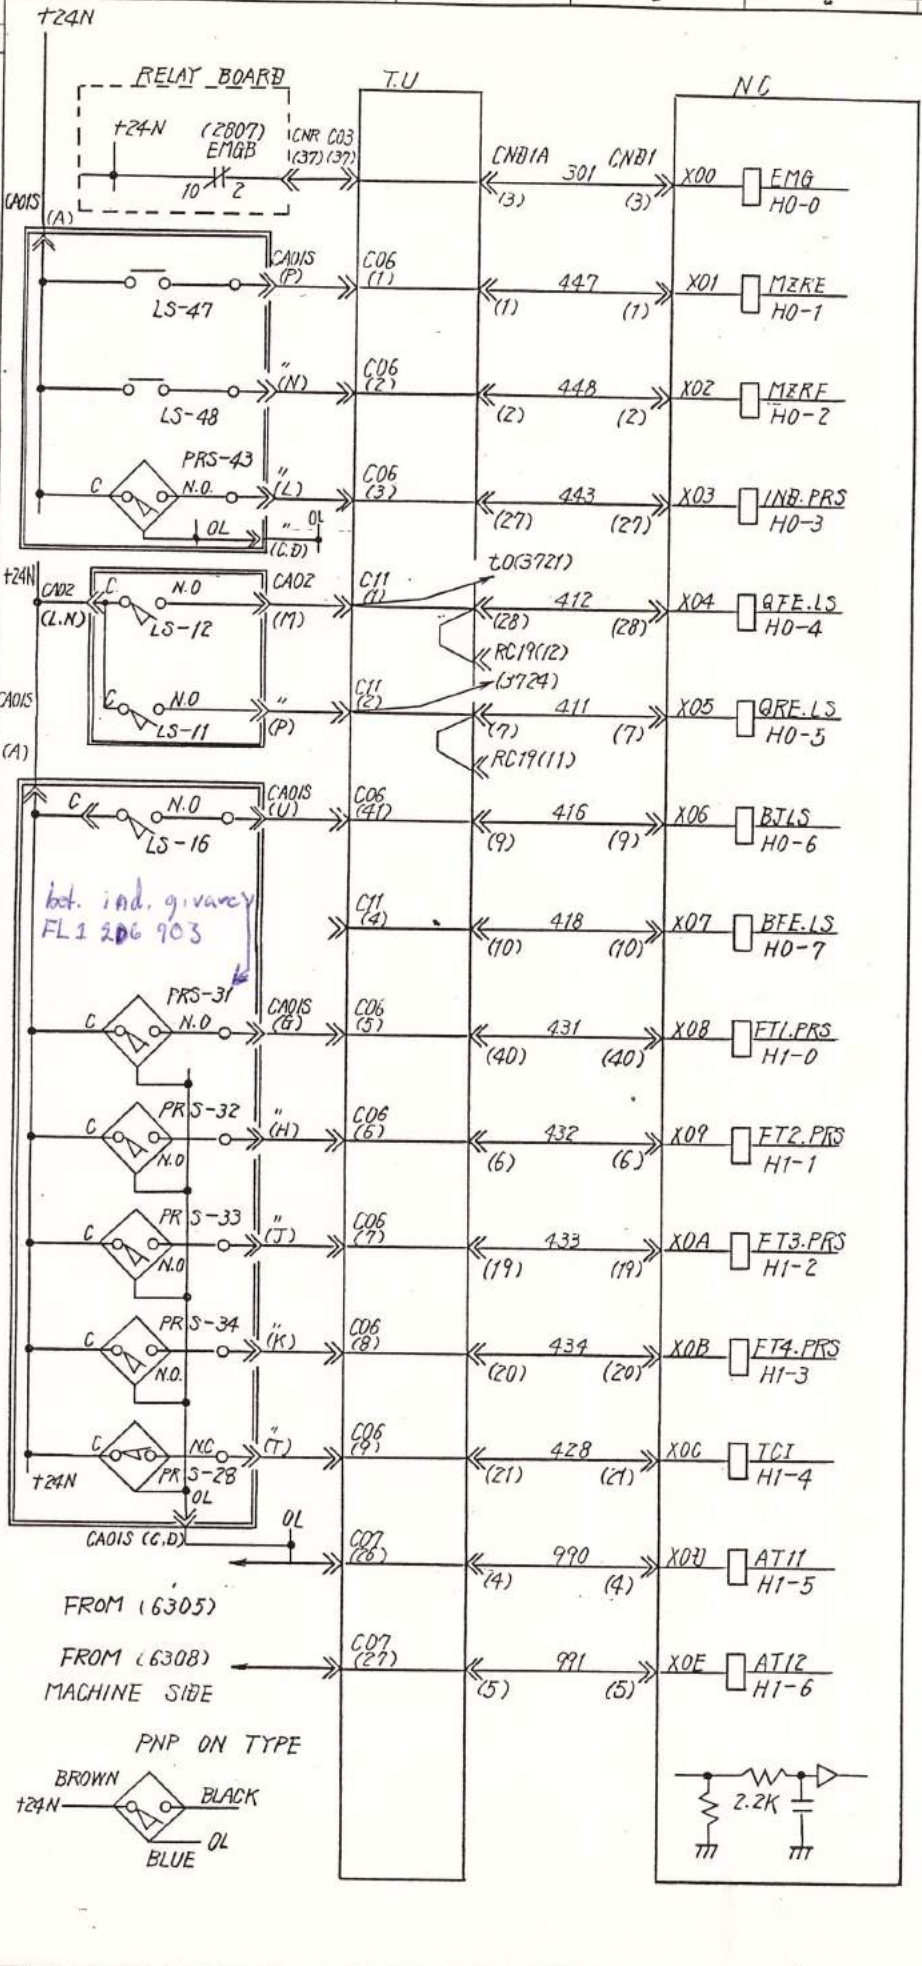 +24N
RELAY BOARD
T.U
NC
+24N
(2807)
EMGB
10
2
CNR
(37)
C03
(37)
CNB1A
(3)
301
CNB1
(3)
X00
EMG
H0-0
CA01S
(A)
LS-47
CA01S
(P)
C06
(1)
(1)
447
(1)
X01
MZRE
H0-1
LS-48
"
(N)
C06
(2)
(2)
448
(2)
X02
MZRF
H0-2
PRS-43
C
N.O.
"
(L)
C06
(3)
(27)
443
(27)
X03
INB.PRS
H0-3
OL
"
(C.D)
OL
+24N
CA02
(L.N)
C
N.O
LS-12
CA02
(M)
C11
(1)
to(3721)
(28)
412
(28)
X04
QFE.LS
H0-4
RC19(12)
CA01S
(A)
C
N.O
LS-11
"
(P)
C11
(2)
(3724)
(7)
411
(7)
X05
QRE.LS
H0-5
RC19(11)
C
N.O
LS-16
CA01S
(U)
C06
(41)
(9)
416
(9)
X06
BJLS
H0-6
bet. ind. givare
FL1 206 903
C11
(4)
(10)
418
(10)
X07
BFE.LS
H0-7
PRS-31
C
N.O
CA01S
(G)
C06
(5)
(40)
431
(40)
X08
FT1.PRS
H1-0
PRS-32
C
N.O
"
(H)
C06
(6)
(6)
432
(6)
X09
FT2.PRS
H1-1
PRS-33
C
N.O
"
(J)
C06
(7)
(19)
433
(19)
X0A
FT3.PRS
H1-2
PRS-34
C
N.O.
"
(K)
C06
(8)
(20)
434
(20)
X0B
FT4.PRS
H1-3
C
NC
+24N
PRS-28
"
(T)
C06
(9)
(21)
428
(21)
X0C
TCI
H1-4
OL
CA01S (C.D)
OL
C07
(26)
(4)
990
(4)
X0D
AT11
H1-5
FROM (6305)
FROM (6308)
MACHINE SIDE
C07
(27)
(5)
991
(5)
X0E
AT12
H1-6
PNP ON TYPE
BROWN
+24N
BLACK
OL
BLUE
2.2K